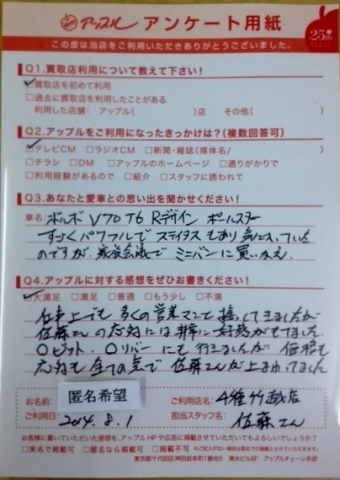 アップル アンケート用紙
25th
この度は当店をご利用いただきありがとうございました。
Q1.買取店利用について教えて下さい!
□買取店を初めて利用
□過去に買取店を利用したことがある
利用した店舗： アップル( )店 その他( )
Q2.アップルをご利用になったきっかけは?(複数回答可)
□テレビCM □ラジオCM □新聞・雑誌(媒体名/ )
□チラシ □DM □アップルのホームページ □通りがかりで
□利用経験があるので □紹介 □スタッフに誘われて
Q3.あなたと愛車との思い出を聞かせください!
車名 ボルボ V70 T6 Rデザイン ポールスター
すごくパワフルで ステイタスもあり 気に入っていた
のですが、家族会議で ミニバンに買いかえ
Q4.アップルに対する感想をぜひお書きください!
□大満足 □満足 □普通 □もう少し □不満
仕事上でも 多くの営業マンと 接してきましたが
佐藤さんの対応には非常に好感がもてました。
〇ビット、〇リバーにも行きましたが 価格も
対応も 全ての点で 佐藤さんが上まわってました
お名前: 匿名希望 ご利用店名:
ご利用日: 2014.8.1 担当スタッフ名: 佐藤さん
お客様に書いていただいた感想を、アップルHPや広告に掲載させていただいてもよろしいでしょうか?
□実名で掲載可 □匿名なら掲載可 □掲載不可
東京都千代田区神田鍛冶町 清水ビル6F アップルチェーン本部